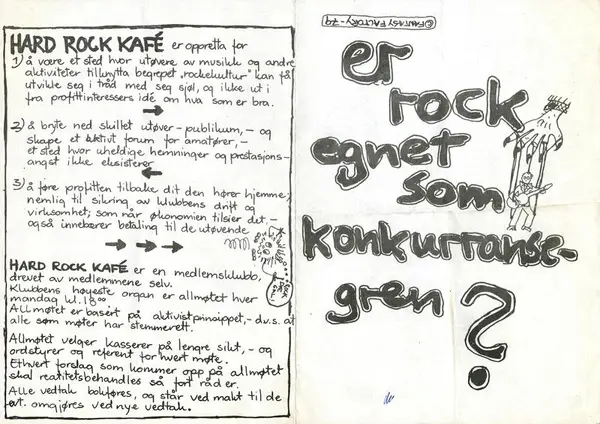 HARD ROCK KAFÉ er oppretta for
1) å være et sted hvor utøvere av musikk og andre
aktiviteter tilknytta begrepet "rockekultur" kan få
utvikle seg i tråd med seg sjøl, og ikke ut i
fra profittinteressers idé om hva som er bra.
2) å bryte ned skillet utøver-publikum, - og
skape et aktivt forum for amatører, -
et sted hvor uheldige hemninger og prestasjons-
angst ikke eksisterer
3) å føre profitten tilbake dit den hører hjemme,
nemlig til sikring av klubbens drift og
virksomhet; som når økonomien tilsier det -
også innebærer betaling til de utøvende
HARD ROCK KAFÉ er en medlemsklubb,
drevet av medlemmene selv.
Klubbens høyeste organ er allmøtet hver
mandag kl. 18⁰⁰
Allmøtet er basert på aktivistprinsippet, - d.v.s. at
alle som møter har stemmerett.
Allmøtet velger kasserer på lengre sikt, - og
ordstyrer og referent for hvert møte.
Ethvert forslag som kommer opp på allmøtet
skal realitetsbehandles så fort råd er.
Alle vedtak bokføres, og står ved makt til de
evt. omgjøres ved nye vedtak.
© FANTASY FACTORY -79
er
rock
egnet
som
konkurranse-
gren
?